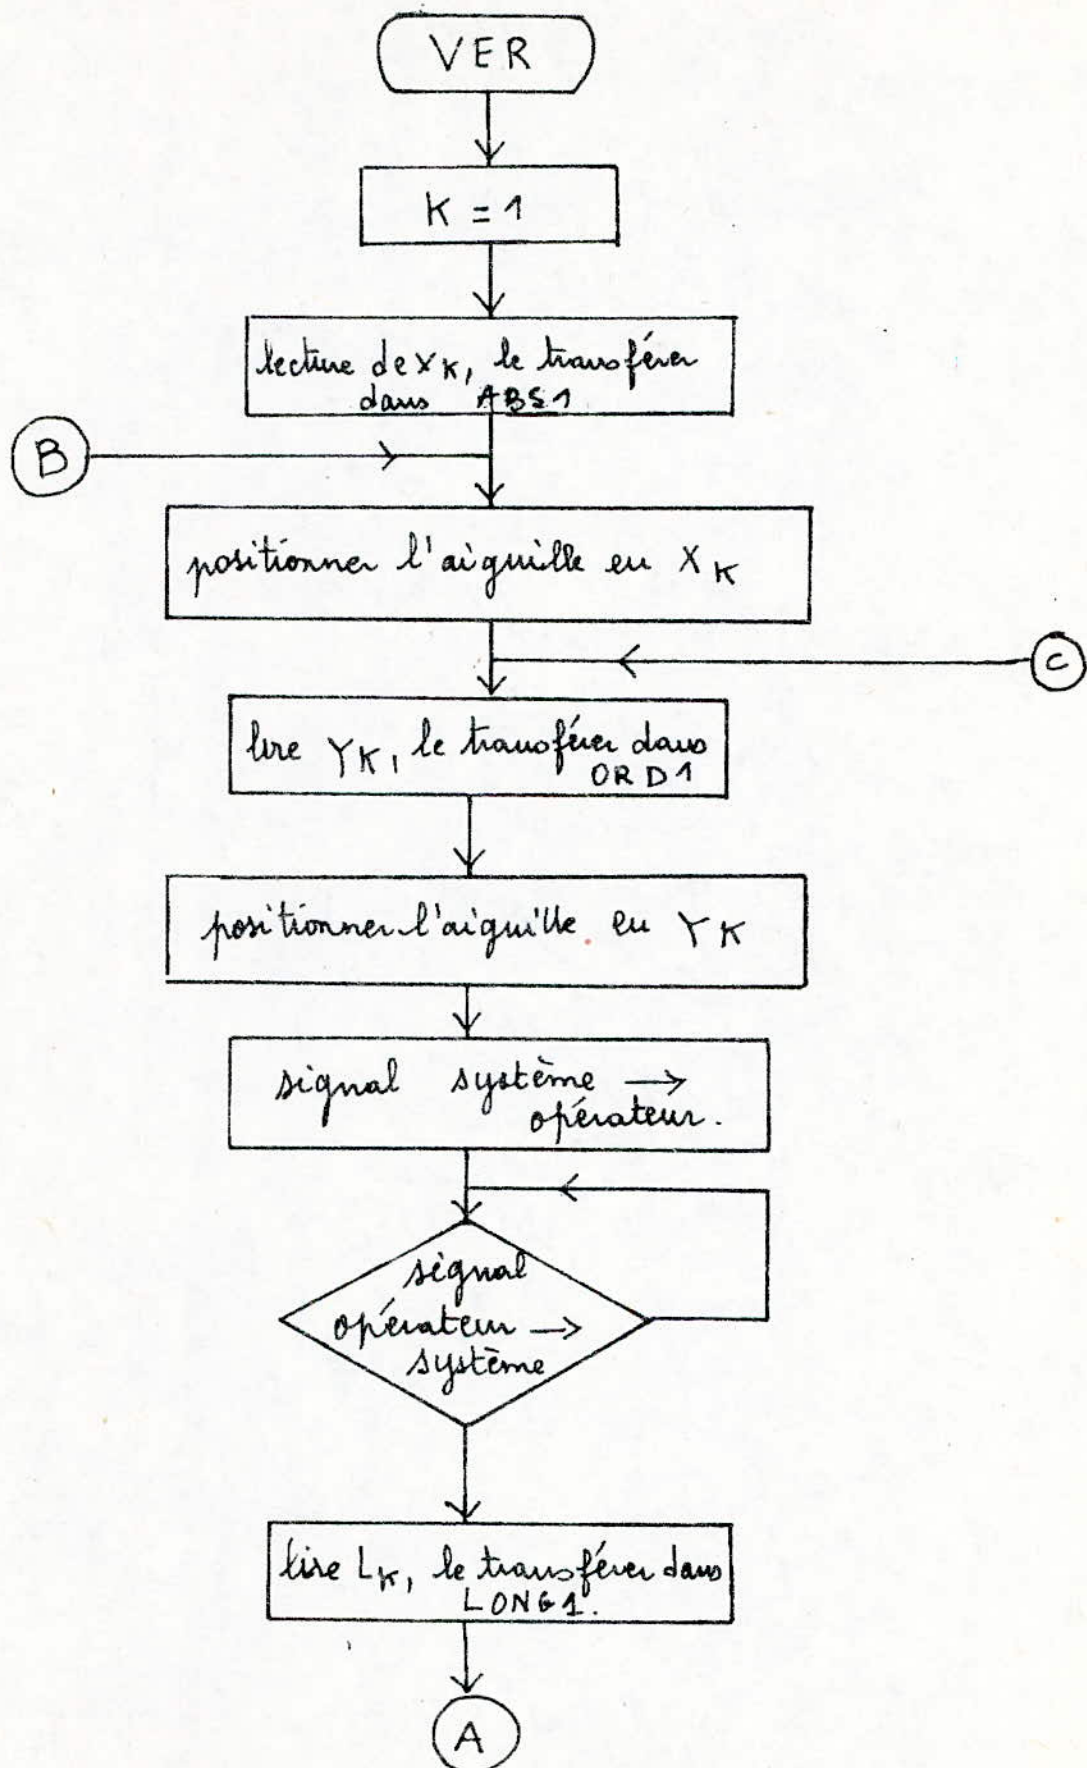 VER
K = 1
lecture de XK, le transférer
dans ABS1
B
positionner l'aiguille en XK
C
lire YK, le transférer dans
ORD1
positionner l'aiguille en YK
signal système →
opérateur.
signal
opérateur →
système
lire LK, le transférer dans
LONG1.
A